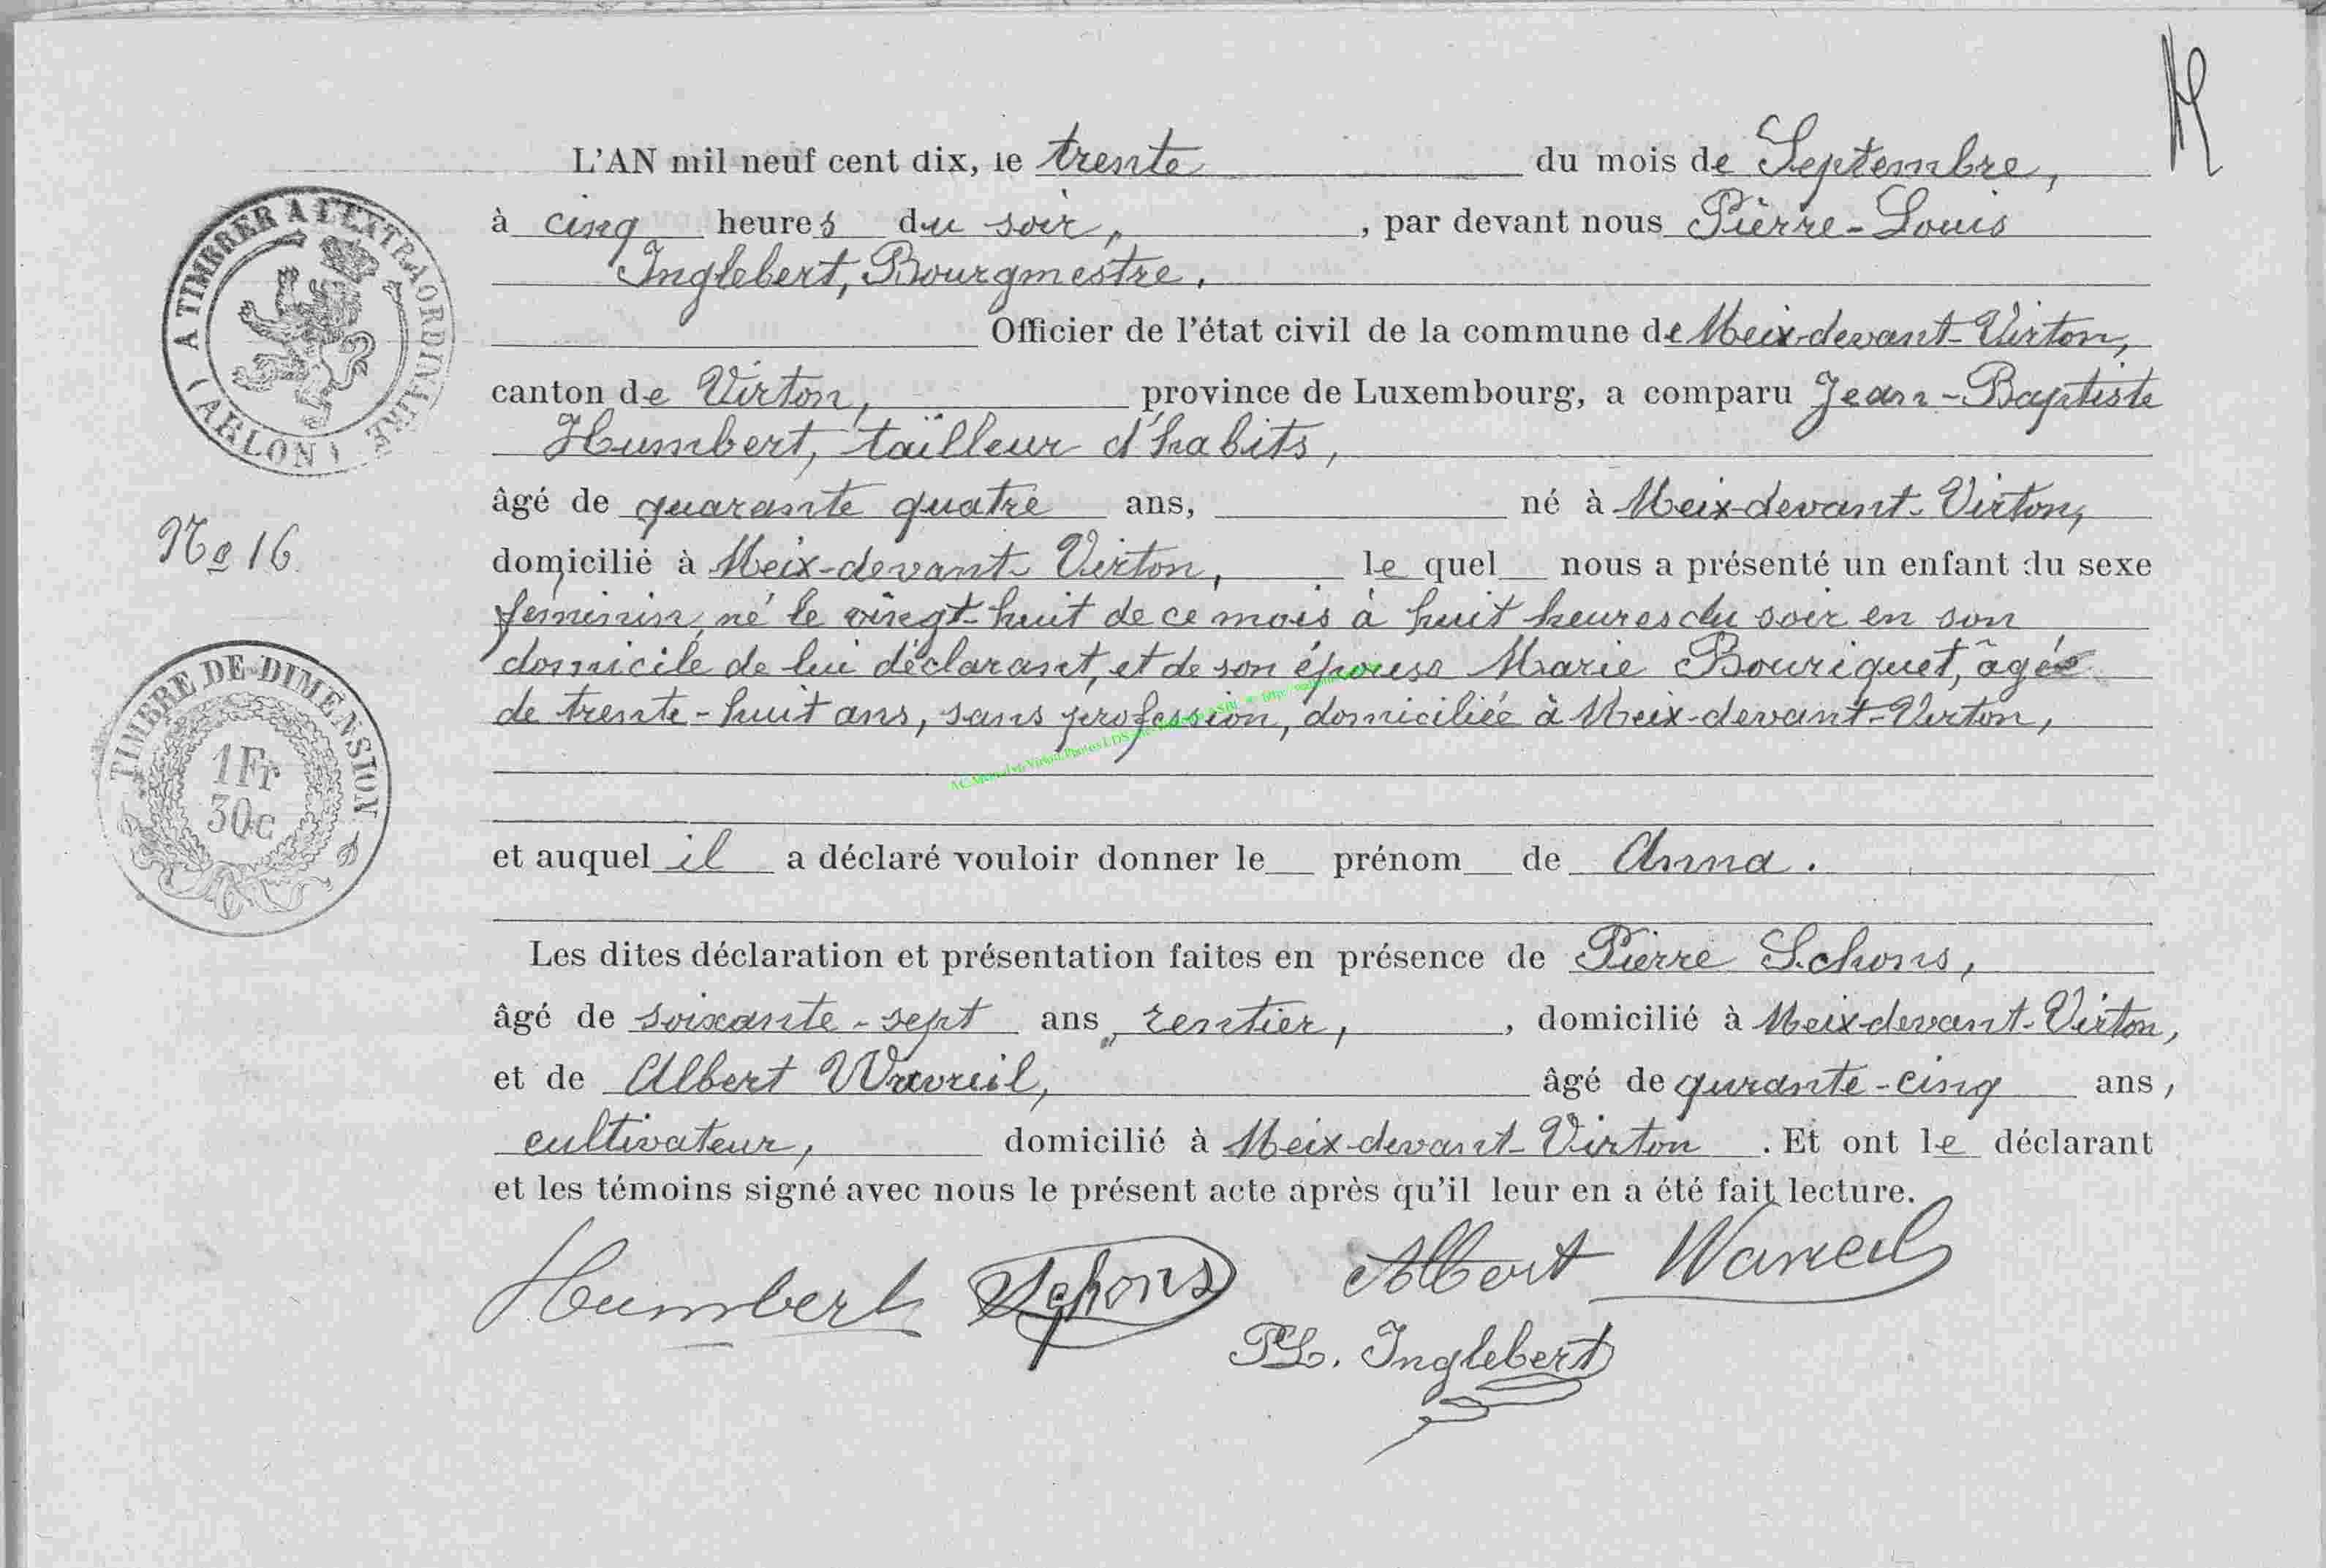 L'AN mil neuf cent dix, le trente du mois de Septembre,
à cinq heures du soir, , par devant nous Pierre-Louis
Inglebert, Bourgmestre.
Officier de l'état civil de la commune de Meix-devant-Virton,
canton de Virton, province de Luxembourg, a comparu Jean-Baptiste
Humbert, tailleur d'habits,
âgé de quarante quatre ans, né à Meix-devant-Virton,
domicilié à Meix-devant-Virton, le quel nous a présenté un enfant du sexe
féminin, né le vingt-huit de ce mois à huit heures du soir en son
domicile de lui déclarant, et de son épouse Marie Bouriquet, âgée
de trente-huit ans, sans profession, domiciliée à Meix-devant-Virton,
et auquel il a déclaré vouloir donner le prénom de Anna.
Les dites déclaration et présentation faites en présence de Pierre Schons,
âgé de soixante-sept ans, rentier, , domicilié à Meix-devant-Virton,
et de Albert Wavreil, âgé de qurante-cinq ans,
cultivateur, domicilié à Meix-devant-Virton. Et ont le déclarant
et les témoins signé avec nous le présent acte après qu'il leur en a été fait lecture.
Humbert Schons Albert Wavreil
PL. Inglebert
A TIMBRER A L'EXTRAORDINAIRE
(ARLON)
No 16.
TIMBRE DE DIMENSION
1Fr
30c